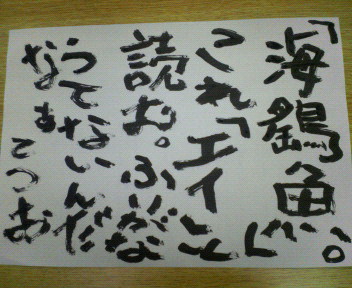 「海鷂魚」。
これ「エイ」と
読お。ふりがな
うてないんだ
なぁ
こつお